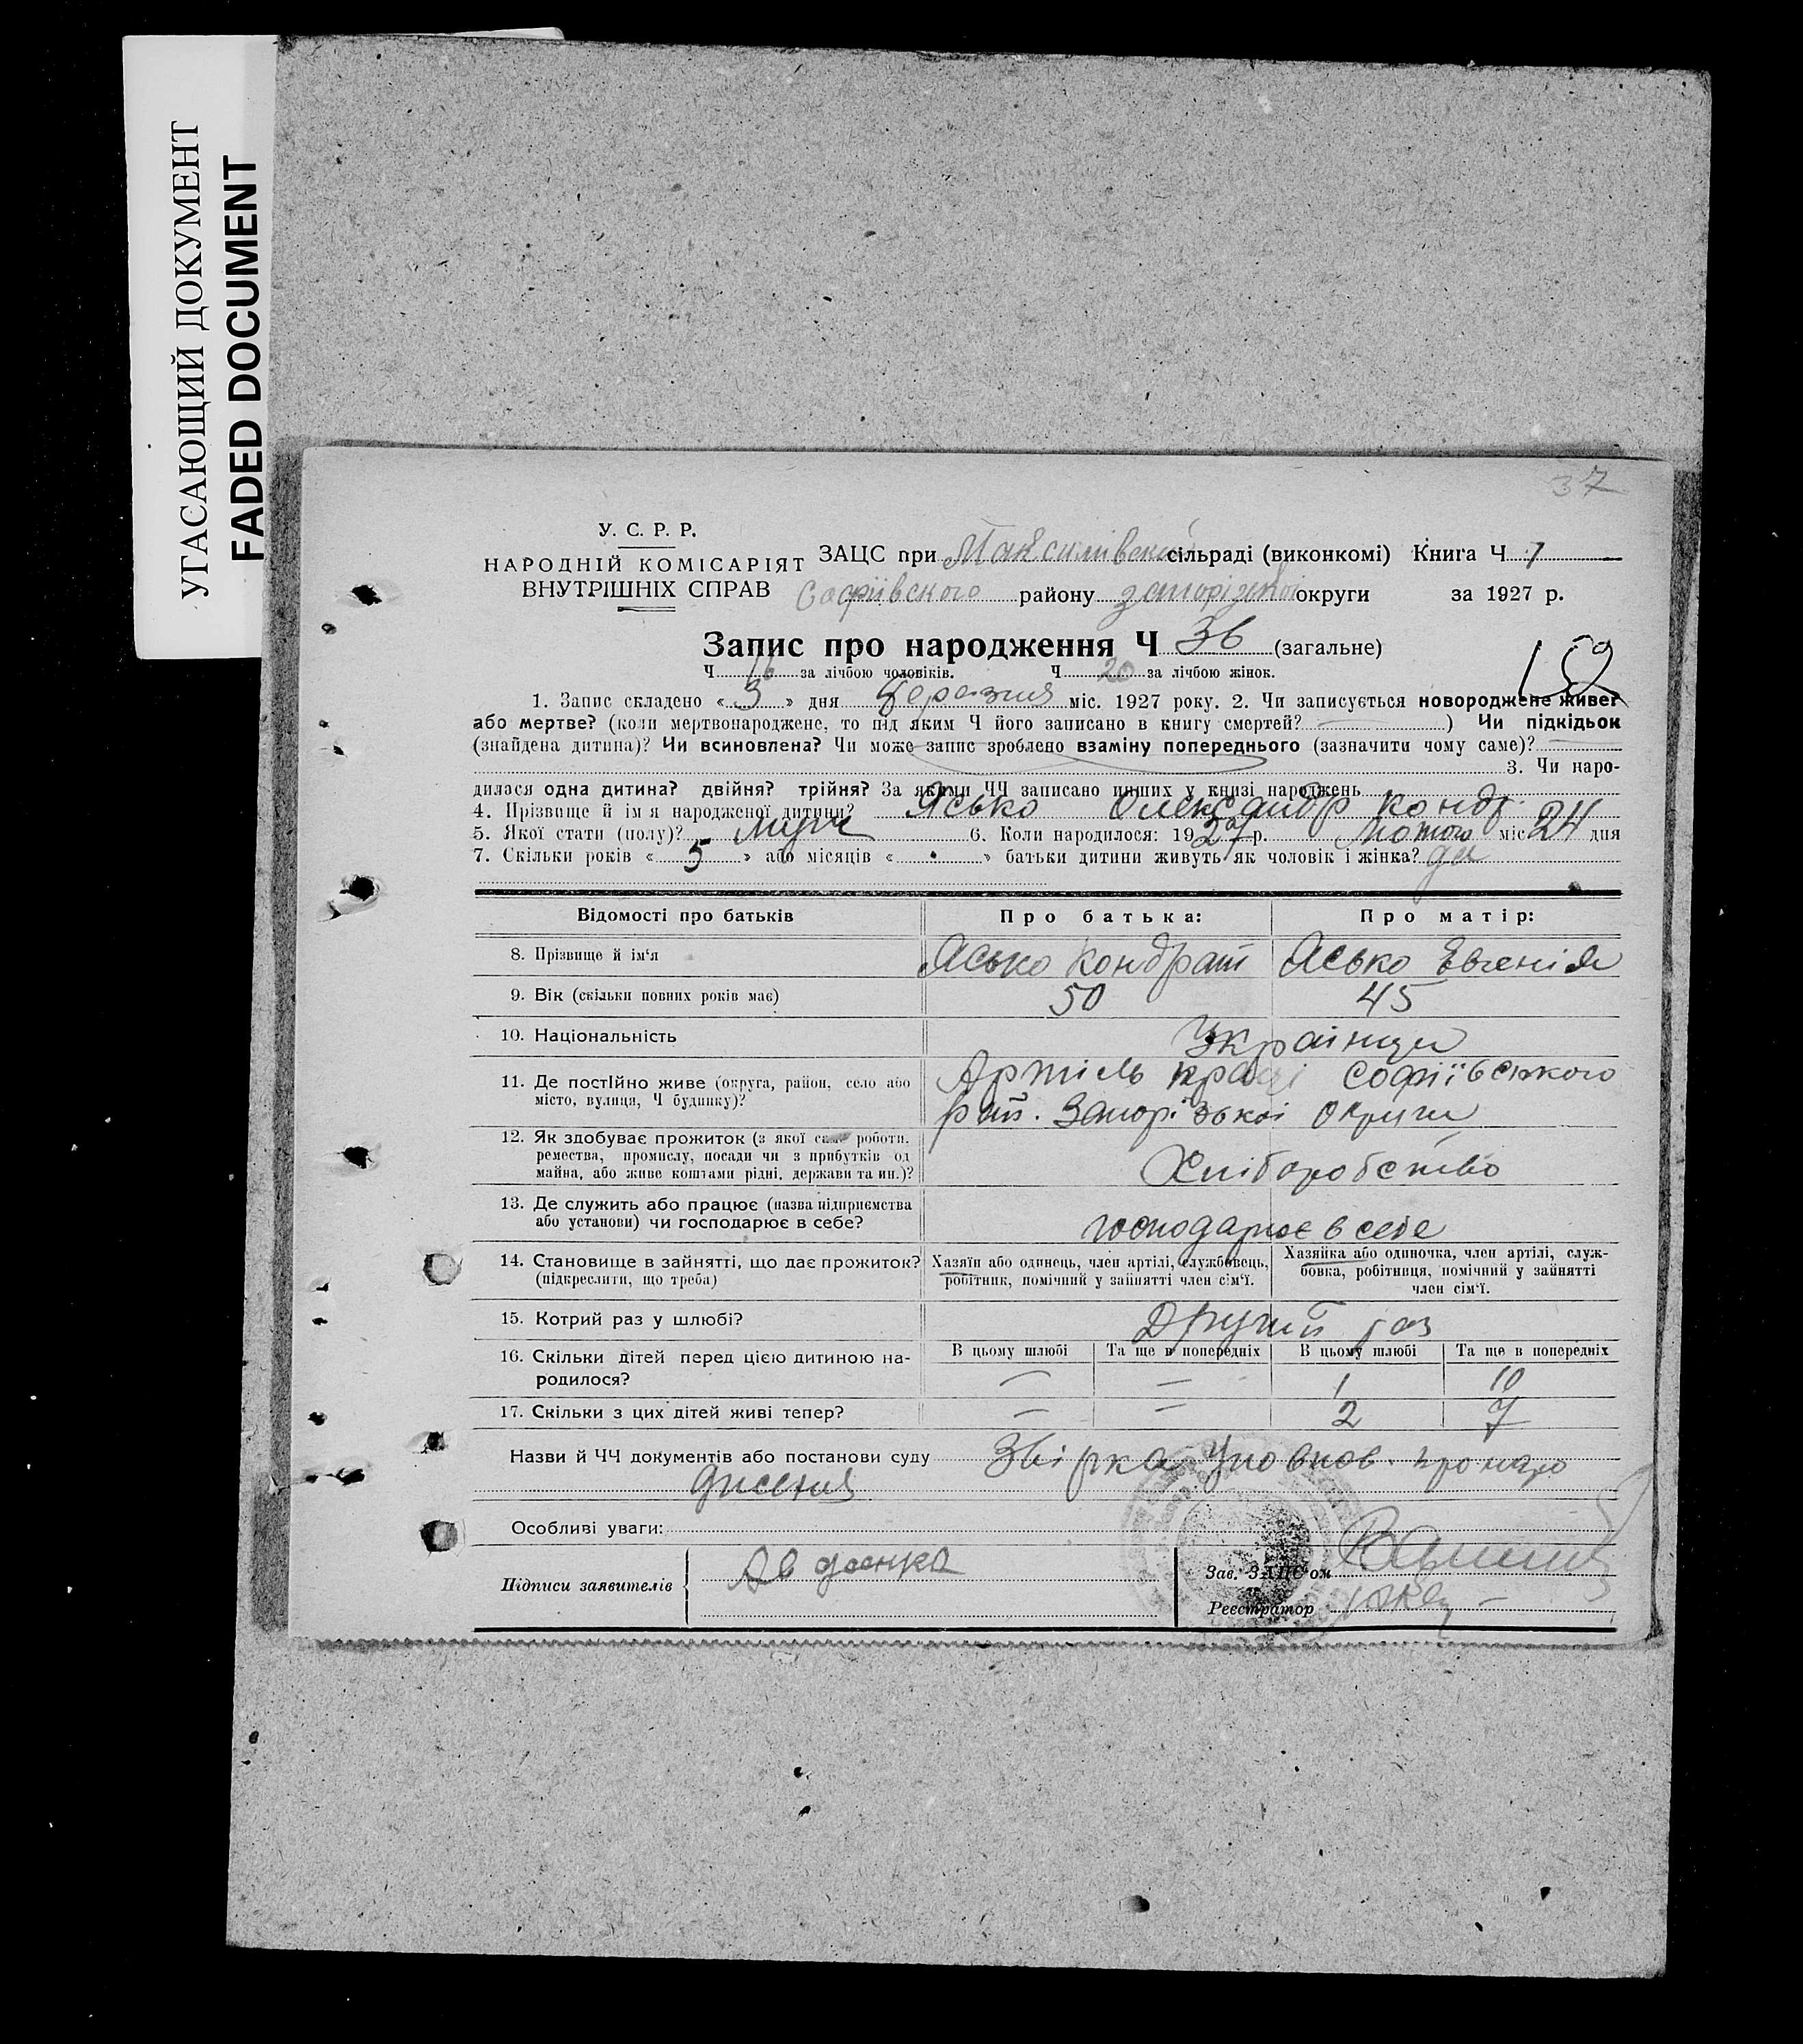 УГАСАЮЩИЙ ДОКУМЕНТ
FADED DOCUMENT
37
У. С. Р. Р.
НАРОДНІЙ КОМІСАРІЯТ
ВНУТРІШНІХ СПРАВ
ЗАЦС при Максимівской сільраді (виконкомі) Книга Ч 1
Софіівского району Запорізькоі округи за 1927 р.
Запис про народження Ч 36 (загальне)
159
Ч 16 за лічбою чоловіків. Ч 20 за лічбою жінок.
1. Запис складено « 3 » дня березня міс. 1927 року. 2. Чи записується новороджене живе?
або мертве? (коли мертвонароджене, то під яким Ч його записано в книгу смертей? ) Чи підкідьок
(знайдена дитина)? Чи всиновлена? Чи може запис зроблено взаміну попереднього (зазначити чому саме)?
3. Чи наро-
дилася одна дитина? двійня? трійня? За якими ЧЧ записано инших у книзі народжень
4. Прізвище й ім'я народженої дитини? Ясько Олександр Кондр.
5. Якої стати (полу)? муж 6. Коли народилося: 1927 р. Лютого міс 24 дня
7. Скільки років « 5 » або місяців « » батьки дитини живуть як чоловік і жінка? да
Відомості про батьків Про батька: Про матір:
8. Прізвище й ім'я Ясько Кондрат Ясько Евгенія
9. Вік (скільки повних років має) 50 45
10. Національність Українци
11. Де постійно живе (округа, район, село або
місто, вулиця, Ч будинку)?
Артіль Софіївського
рай. Запорізькоі Округи
12. Як здобуває прожиток (з якої саме роботи,
ремества, промислу, посади чи з прибутків од
майна, або живе коштами рідні, держави та ин.)?
Хліборобство
13. Де служить або працює (назва підприємства
або установи) чи господарює в себе?
господарює в себе
14. Становище в зайнятті, що дає прожиток?
(підкреслити, що треба)
Хазяїн або одинець, член артілі, службовець,
робітник, помічний у зайнятті член сім'ї.
Хазяйка або одиночка, член артілі, служ-
бовка, робітниця, помічний у зайнятті
член сім'ї.
15. Котрий раз у шлюбі? Другий раз
16. Скільки дітей перед цією дитиною на-
родилося?
В цьому шлюбі Та ще в попередніх В цьому шлюбі Та ще в попередніх
— — 1 10
17. Скільки з цих дітей живі тепер? — — 2 7
Назви й ЧЧ документів або постанови суду Звірка Уповнов. про наро
дження
Особливі уваги:
Підписи заявителів Авдеенка
Зав. ЗАЦС'ом
Реєстратор